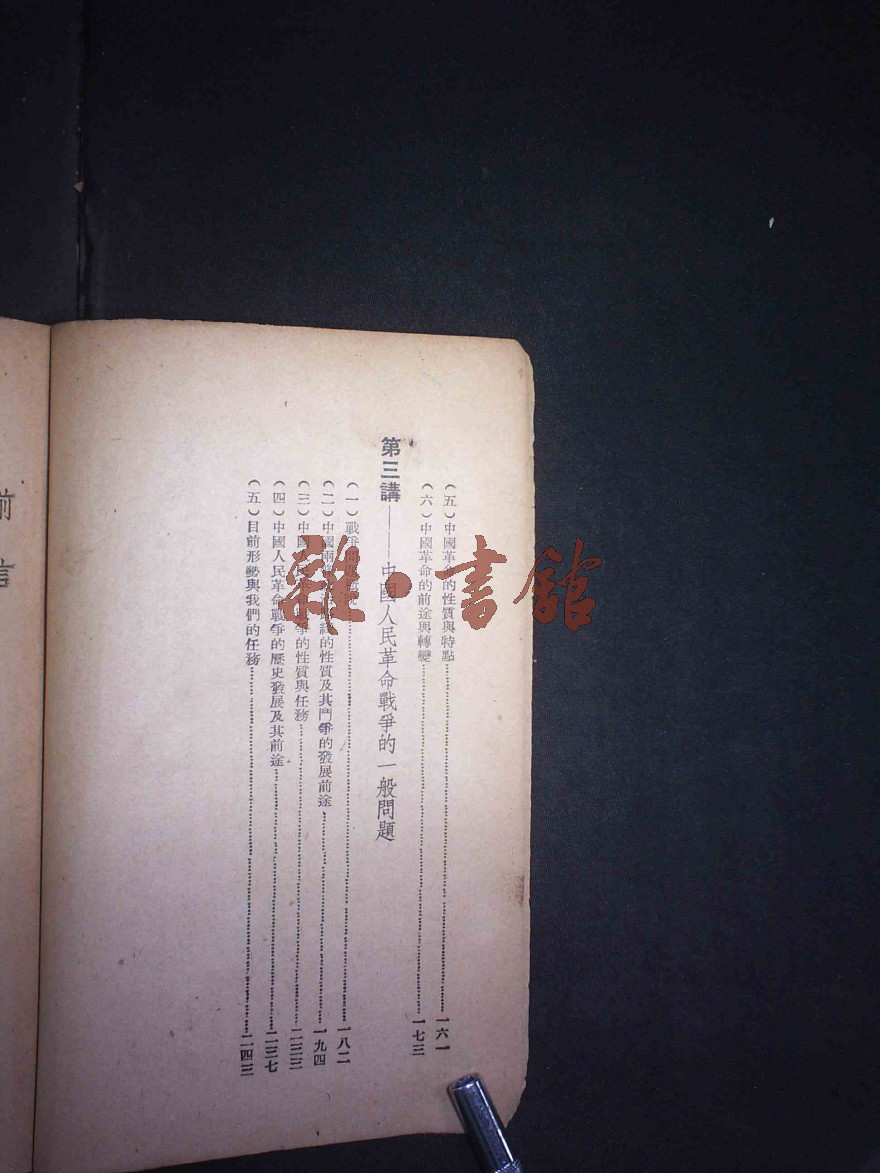 (五)中國革命的性質與特點……一六一
(六)中國革命的前途與轉變……一七三
第三講——中國人民革命戰爭的一般問題
(一)戰爭……一八二
(二)中國兩的性質及其鬥爭的發展前途……一九四
(三)中國戰爭的性質與任務……
(四)中國人民革命戰爭的歷史發展及其前途……二三七
(五)目前形勢與我們的任務……二四三
前言
雜·書館